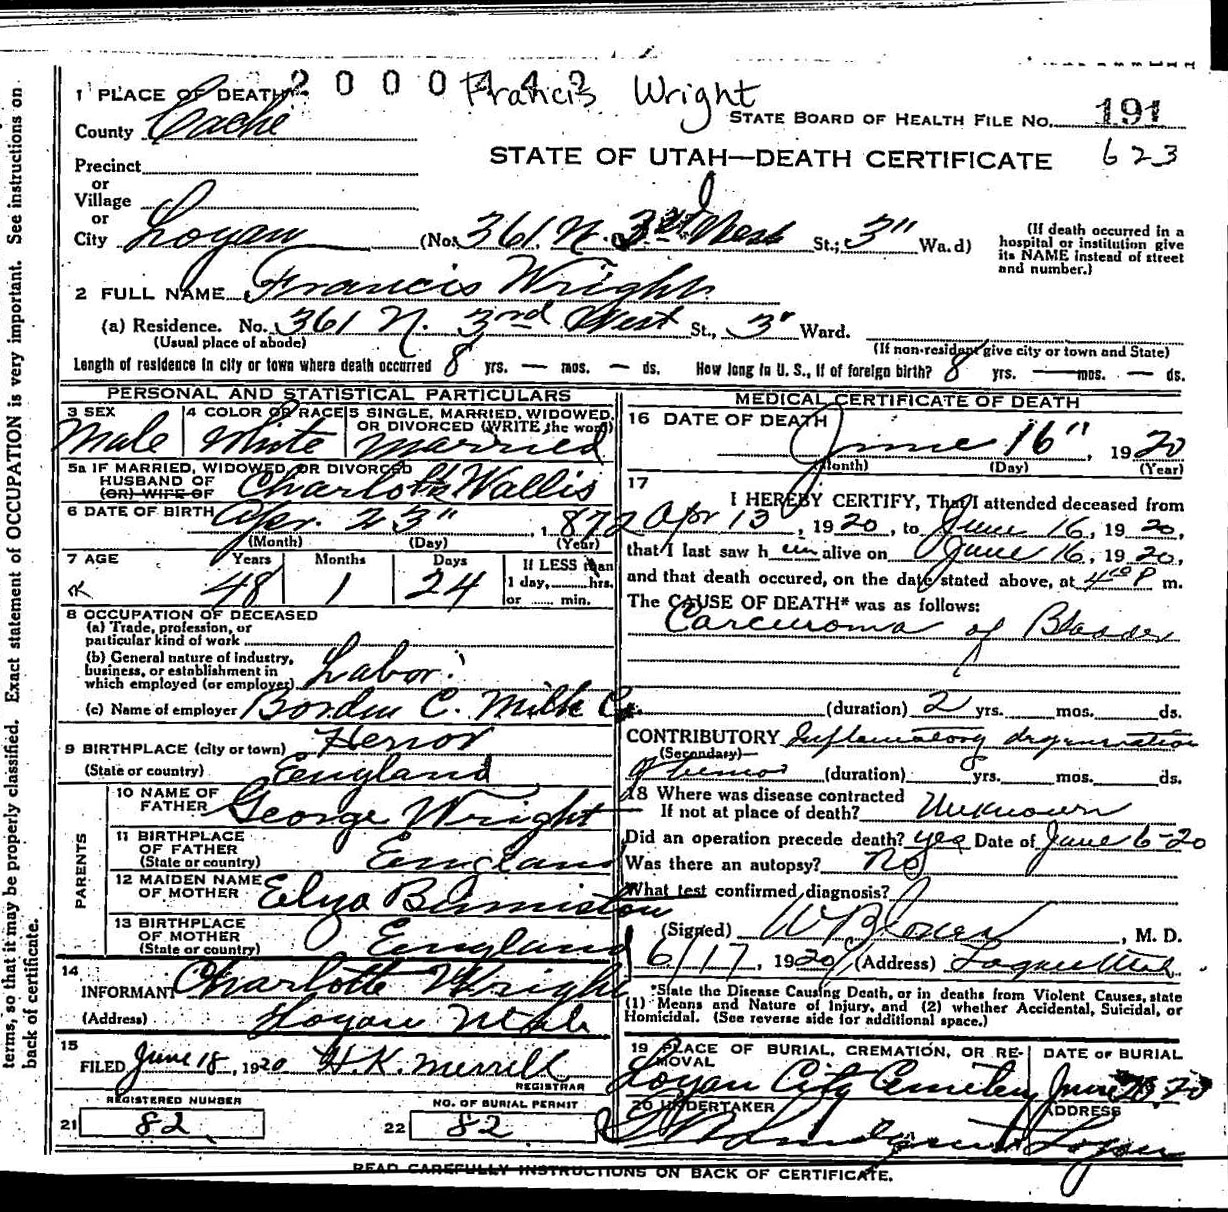 2 0 0 0 4 4 2 Francis Wright
1 PLACE OF DEATH
County Cache
STATE BOARD OF HEALTH FILE NO. 191
623
STATE OF UTAH—DEATH CERTIFICATE
Precinct
or
Village
or
City Logan (No. 361 N. 3rd West St.; 3" Wa.d)
(If death occurred in a
hospital or institution give
its NAME instead of street
and number.)
2 FULL NAME Francis Wright
(a) Residence. No. 361 N. 3rd West St., 3" Ward.
(Usual place of abode)
(If non-resident give city or town and State)
Length of residence in city or town where death occurred 8 yrs. — mos. — ds. How long in U. S., if of foreign birth? 8 yrs. — mos. — ds.
PERSONAL AND STATISTICAL PARTICULARS
3 SEX Male
4 COLOR OR RACE White
5 SINGLE, MARRIED, WIDOWED, OR DIVORCED (WRITE the word) Married
5a IF MARRIED, WIDOWED, OR DIVORCED
HUSBAND OF Charlotte Wallis
(OR) WIFE OF
6 DATE OF BIRTH Apr. 23", 1872
(Month) (Day) (Year)
7 AGE Years Months Days If LESS than
48 1 24 1 day,......hrs.
or ...... min.
8 OCCUPATION OF DECEASED
(a) Trade, profession, or
particular kind of work
(b) General nature of industry,
business, or establishment in
which employed (or employer) Labor
(c) Name of employer Borden C. Milk Co.
9 BIRTHPLACE (city or town)
(State or country) England
PARENTS
10 NAME OF
FATHER George Wright
11 BIRTHPLACE
OF FATHER
(State or country) England
12 MAIDEN NAME
OF MOTHER
13 BIRTHPLACE
OF MOTHER
(State or country) England
14
INFORMANT Charlotte Wright
(Address) Logan Utah
15
FILED June 18, 1920 H. K. Merrill
REGISTRAR
REGISTERED NUMBER NO. OF BURIAL PERMIT
21 82 22 82
MEDICAL CERTIFICATE OF DEATH
16 DATE OF DEATH
June 16", 1920
(Month) (Day) (Year)
17
I HEREBY CERTIFY, That I attended deceased from
Apr 13, 1920, to June 16, 1920,
that I last saw h im alive on June 16, 1920,
and that death occured, on the date stated above, at 4 10 P m.
The CAUSE OF DEATH* was as follows:
Carcinoma of Bladder
(duration) 2 yrs. mos. ds.
CONTRIBUTORY Inflamatory degeneration
(Secondary)
of tumor (duration) yrs. mos. ds.
18 Where was disease contracted
If not at place of death? Unknown
Did an operation precede death? yes Date of June 6-20
Was there an autopsy? No
What test confirmed diagnosis?
(Signed) , M. D.
6/17, 1920 (Address) Logan Utah
*State the Disease Causing Death, or in deaths from Violent Causes, state
(1) Means and Nature of Injury, and (2) whether Accidental, Suicidal, or
Homicidal. (See reverse side for additional space.)
19 PLACE OF BURIAL, CREMATION, OR RE-
MOVAL DATE OF BURIAL
Logan City Cemetery June 20, 20
20 UNDERTAKER ADDRESS
Logan
READ CAREFULLY INSTRUCTIONS ON BACK OF CERTIFICATE.
terms, so that it may be properly classified. Exact statement of OCCUPATION is very important. See instructions on
back of certificate.